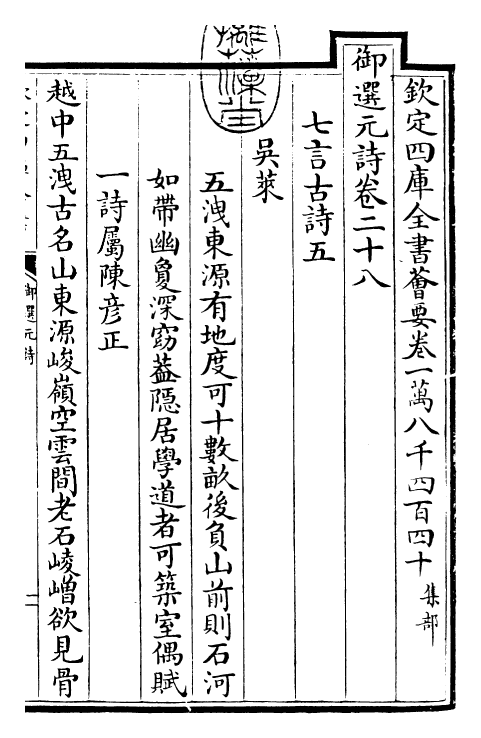 欽定四庫全書薈要卷一萬八千四百四十 集部
御選元詩卷二十八
七言古詩五
吳萊
五洩東源有地度可十數畝後負山前則石河
如帶幽敻深窈葢隠居學道者可築室偶賦
一詩屬陳彦正
越中五洩古名山東源峻嶺空雲間老石崚嶒欲見骨
御選元詩